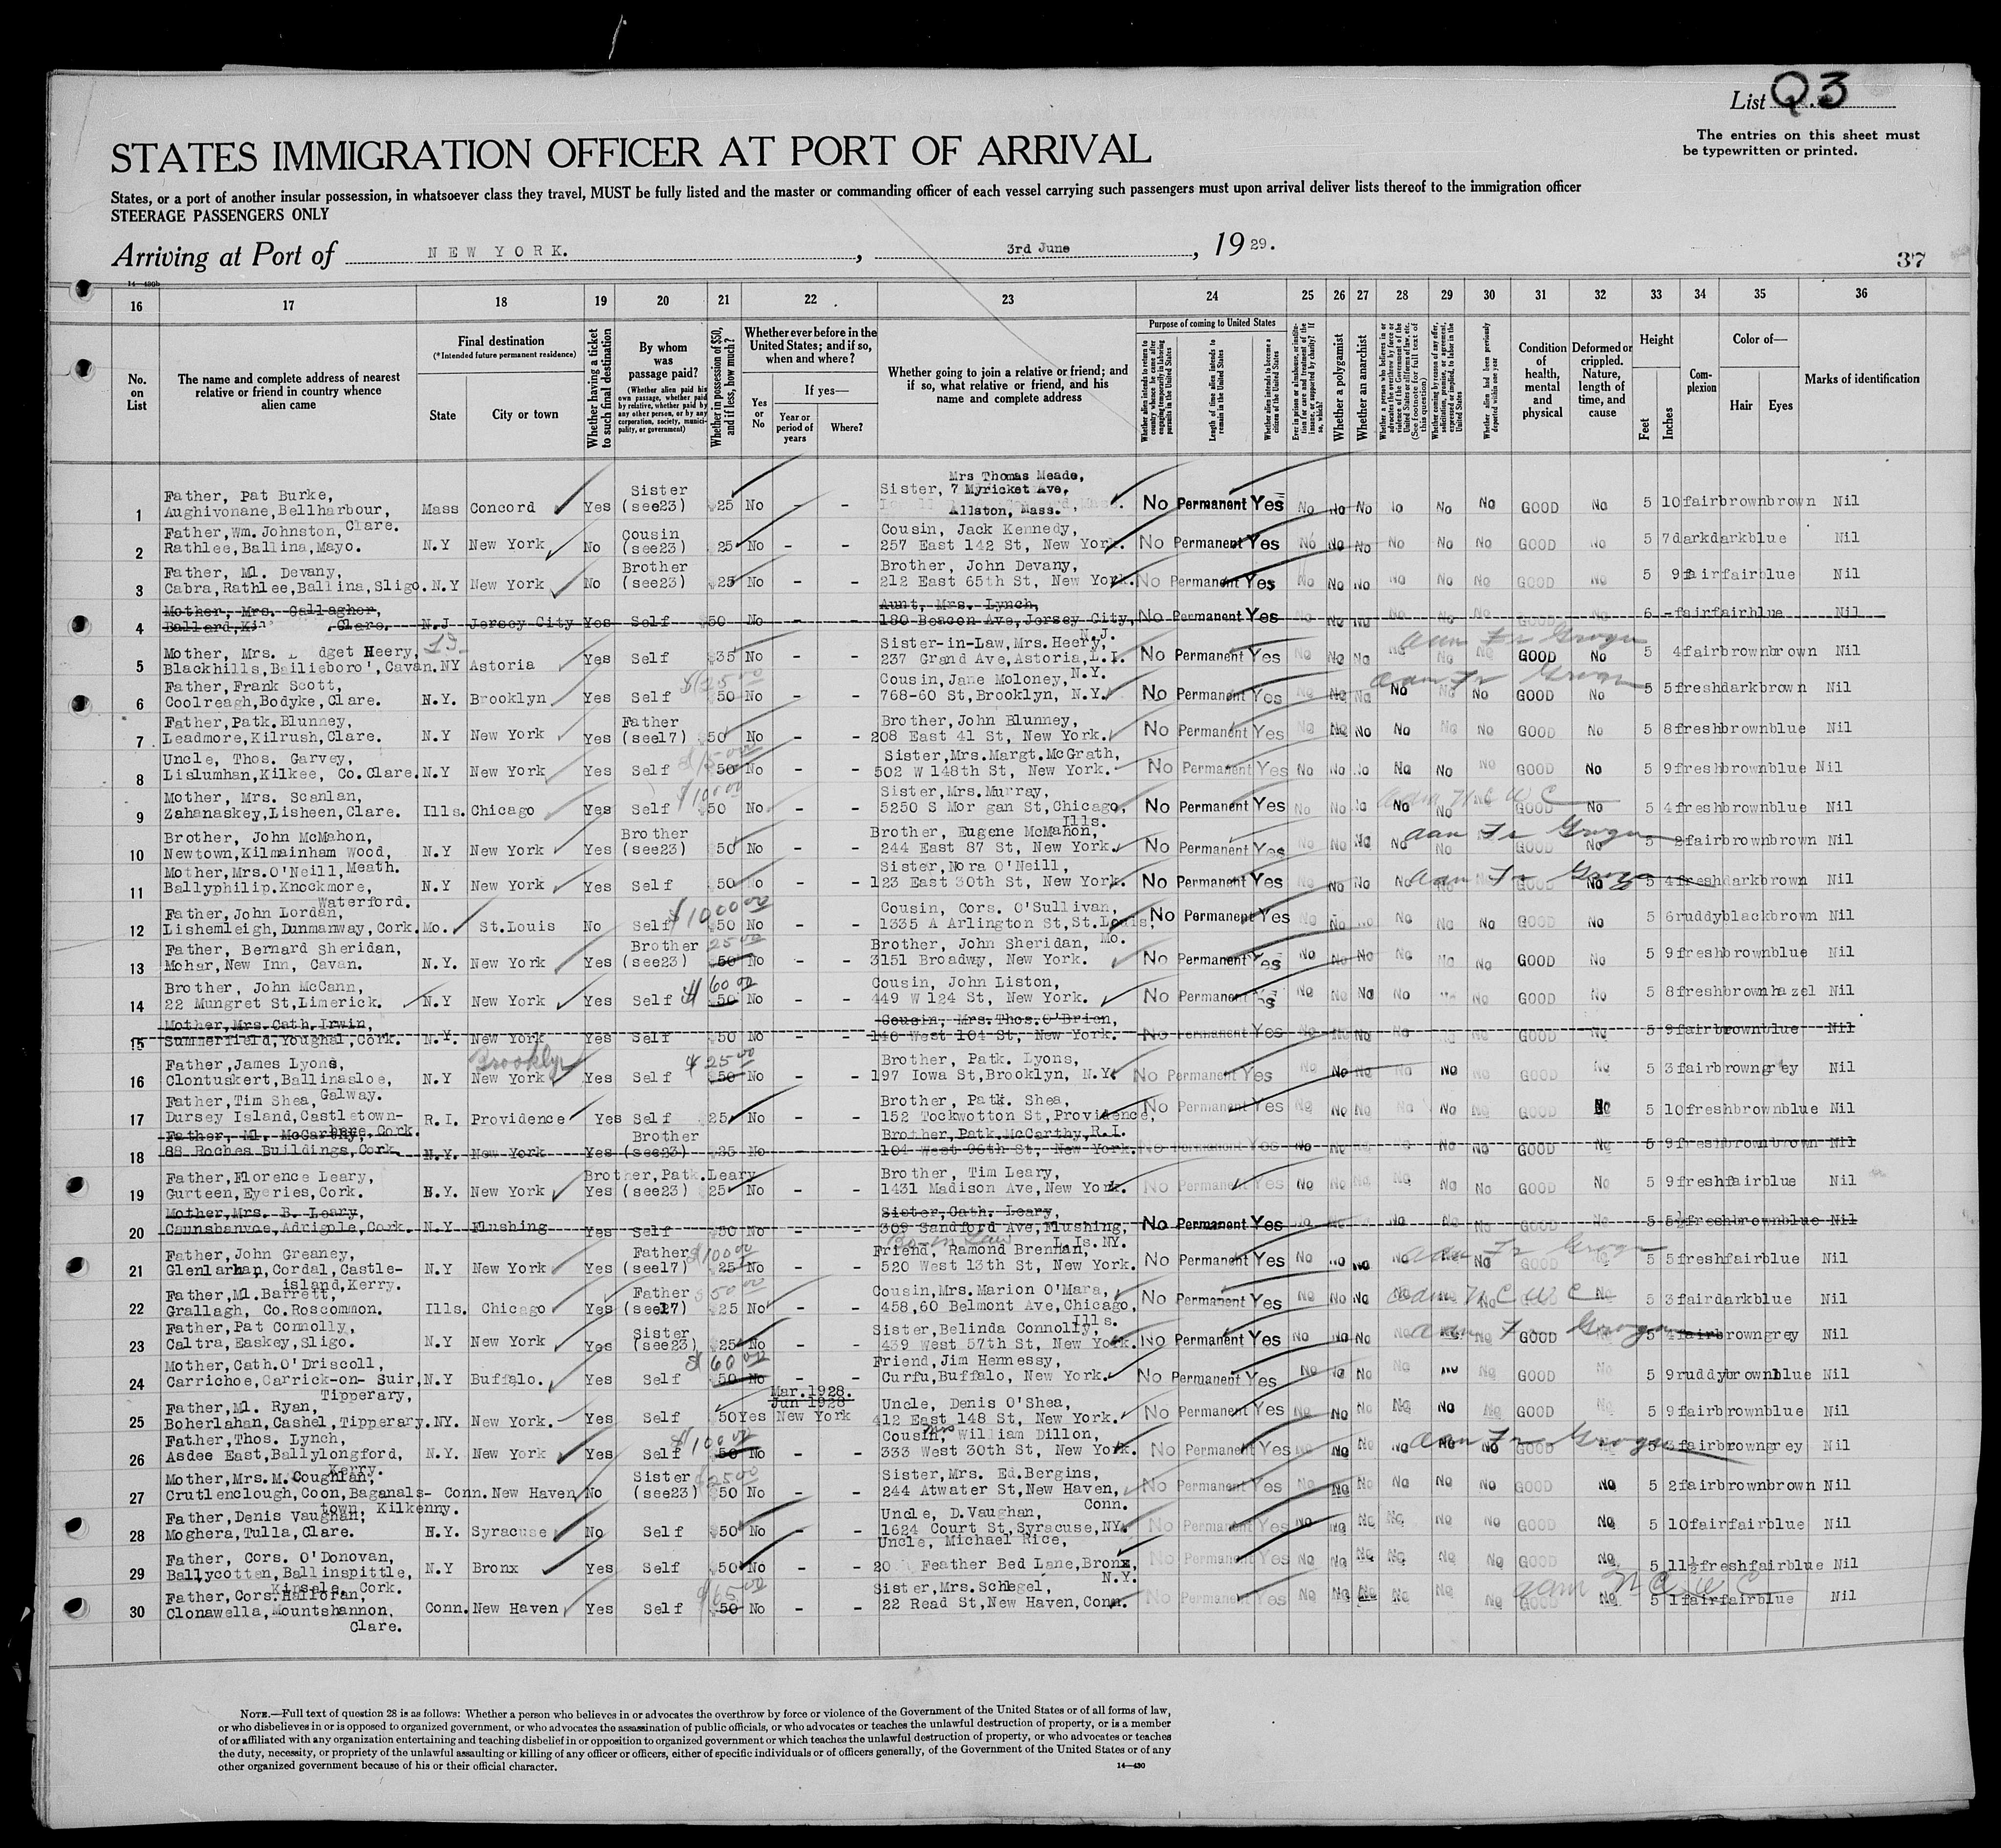 List Q.3
The entries on this sheet must
be typewritten or printed.
STATES IMMIGRATION OFFICER AT PORT OF ARRIVAL
States, or a port of another insular possession, in whatsoever class they travel, MUST be fully listed and the master or commanding officer of each vessel carrying such passengers must upon arrival deliver lists thereof to the immigration officer
STEERAGE PASSENGERS ONLY
Arriving at Port of NEW YORK. , 3rd June , 1929.
37
14—430b
16 17 18 19 20 21 22 23 24 25 26 27 28 29 30 31 32 33 34 35 36
No. on List
The name and complete address of nearest relative or friend in country whence alien came
Final destination
(*Intended future permanent residence)
State
City or town
Whether having a ticket to such final destination
By whom was passage paid?
(Whether alien paid his own passage, whether paid by relative, whether paid by any other person, or by any corporation, society, municipality, or government)
Whether in possession of $50, and if less, how much?
Whether ever before in the United States; and if so, when and where?
Yes or No
If yes—
Year or period of years
Where?
Whether going to join a relative or friend; and if so, what relative or friend, and his name and complete address
Purpose of coming to United States
Whether alien intends to return to country whence he came after engaging temporarily in laboring pursuits in the United States
Length of time alien intends to remain in the United States
Whether alien intends to become a citizen of the United States
Ever in prison or almshouse, or institution for care and treatment of the insane, or supported by charity? If so, which?
Whether a polygamist
Whether an anarchist
Whether a person who believes in or advocates the overthrow by force or violence of the Government of the United States or all forms of law, etc. (See footnote for full text of this question)
Whether coming by reason of any offer, solicitation, promise, or agreement, expressed or implied, to labor in the United States
Whether alien had been previously deported within one year
Condition of health, mental and physical
Deformed or crippled. Nature, length of time, and cause
Height
Feet
Inches
Complexion
Color of—
Hair
Eyes
Marks of identification
1 Father, Pat Burke, Aughivonane,Bellharbour, Clare. Mass Concord Yes Sister (see23) 25 No - - Sister, Mrs Thomas Meade, 7 Myricket Ave, Allston, Mass. No Permanent Yes No No No No No No GOOD No 5 10 fair brown brown Nil
2 Father,Wm. Johnston, Rathlee,Ballina,Mayo. N.Y New York No Cousin (see23) 25 No - - Cousin, Jack Kennedy, 257 East 142 St, New York. No Permanent Yes No No No No No No GOOD No 5 7 dark dark blue Nil
3 Father, Ml. Devany, Cabra,Rathlee,Ballina,Sligo. N.Y New York No Brother (see23) 25 No - - Brother, John Devany, 212 East 65th St, New York. No Permanent Yes No No No No No No GOOD No 5 9 fair fair blue Nil
4 Mother, Mrs. Gallagher, Ballard, Clare. N.J Jersey City Yes Self 50 No - - Aunt, Mrs. Lynch, 180 Beacon Ave,Jersey City, N.J. No Permanent Yes No No No No No No GOOD No 6 - fair fair blue Nil
5 Mother, Mrs. dget Heery, Blackhills,Bailieboro',Cavan. NY Astoria Yes Self 35 No - - Sister-in-Law,Mrs.Heery, 237 Grand Ave,Astoria,L.I. N.Y. No Permanent Yes No No No No No No GOOD No 5 4 fair brown brown Nil
6 Father,Frank Scott, Coolreagh,Bodyke,Clare. N.Y. Brooklyn Yes Self $25.00 50 No - - Cousin,Jane Moloney, 768-60 St,Brooklyn, N.Y. No Permanent Yes No No No No No No GOOD No 5 5 fresh dark brown Nil
7 Father,Patk.Blunney, Leadmore,Kilrush,Clare. N.Y New York Yes Father (see17) 50 No - - Brother,John Blunney, 208 East 41 St, New York. No Permanent Yes No No No No No No GOOD No 5 8 fresh brown blue Nil
8 Uncle, Thos. Garvey, Lislumhan,Kilkee, Co.Clare. N.Y New York Yes Self 50 No - - Sister,Mrs.Margt.McGrath, 502 W 148th St, New York. No Permanent Yes No No No No No No GOOD No 5 9 fresh brown blue Nil
9 Mother, Mrs. Scanlan, Zahanaskey,Lisheen,Clare. Ills. Chicago Yes Self $100.00 50 No - - Sister,Mrs.Murray, 5250 S Mor gan St,Chicago, Ills. No Permanent Yes No No No No No No GOOD No 5 4 fresh brown blue Nil
10 Brother, John McMahon, Newtown,Kilmainham Wood, Meath. N.Y New York Yes Brother (see23) 50 No - - Brother, Eugene McMahon, 244 East 87 St, New York. No Permanent Yes No No No No No No GOOD No 5 2 fair brown brown Nil
11 Mother,Mrs.O'Neill, Ballyphilip.Knockmore, Waterford. N.Y New York Yes Self 50 No - - Sister,Nora O'Neill, 123 East 30th St, New York. No Permanent Yes No No No No No No GOOD No 5 4 fresh dark brown Nil
12 Father,John Lordan, Lishemleigh,Dunmanway,Cork. Mo. St.Louis No Self $100.00 50 No - - Cousin, Cors. O'Sullivan, 1335 A Arlington St,St.Louis, Mo. No Permanent Yes No No No No No No GOOD No 5 6 ruddy black brown Nil
13 Father, Bernard Sheridan, Mohar,New Inn, Cavan. N.Y. New York Yes Brother (see23) 25.00 50 No - - Brother, John Sheridan, 3151 Broadway, New York. No Permanent Yes No No No No No No GOOD No 5 9 fresh brown blue Nil
14 Brother, John McCann, 22 Mungret St,Limerick. N.Y New York Yes Self $60.00 50 No - - Cousin, John Liston, 449 W 124 St, New York. No Permanent Yes No No No No No No GOOD No 5 8 fresh brown hazel Nil
15 Mother,Mrs.Cath.Irwin, Summerfield,Youghal,Cork. N.Y. New York Yes Self 50 No - - Cousin, Mrs.Thos.O'Brien, 140 West 104 St, New York. No Permanent Yes No No No No No No GOOD No 5 9 fair brown blue Nil
16 Father,James Lyons, Clontuskert,Ballinasloe, Galway. N.Y Brooklyn New York Yes Self $25.00 50 No - - Brother, Patk. Lyons, 197 Iowa St,Brooklyn, N.Y. No Permanent Yes No No No No No No GOOD No 5 3 fair brown grey Nil
17 Father,Tim Shea, Dursey Island,Castletown-bere,Cork. R.I. Providence Yes Self 25 No - - Brother, Patk. Shea, 152 Tockwotton St,Providence, R.I. No Permanent Yes No No No No No No GOOD No 5 10 fresh brown blue Nil
18 Father, Ml. McCarthy, 88 Roches Buildings,Cork. N.Y. New York Yes Brother (see23) 25 No - - Brother,Patk.McCarthy, 104 West 96th St, New York. No Permanent Yes No No No No No No GOOD No 5 9 fresh brown brown Nil
19 Father,Florence Leary, Gurteen,Eyeries,Cork. N.Y. New York Yes Brother,Patk.Leary (see23) 25 No - - Brother, Tim Leary, 1431 Madison Ave,New York. No Permanent Yes No No No No No No GOOD No 5 9 fresh fair blue Nil
20 Mother,Mrs. B. Leary, Caunsbanvoe,Adrigole,Cork. N.Y Flushing Yes Self 50 No - - Sister,Cath. Leary, 309 Sandford Ave,Flushing, L.Is.NY. No Permanent Yes No No No No No No GOOD No 5 5½ fresh brown blue Nil
21 Father,John Greaney, Glenlarhan,Cordal,Castle-island,Kerry. N.Y New York Yes Father (see17) $100.00 25 No - - Bro-in Law Friend, Ramond Brennan, 520 West 13th St, New York. No Permanent Yes No No No No No No GOOD No 5 5 fresh fair blue Nil
22 Father,Ml.Barrett, Grallagh, Co.Roscommon. Ills. Chicago Yes Father (see17) 50.00 25 No - - Cousin,Mrs.Marion O'Mara, 458,60 Belmont Ave,Chicago, Ills. No Permanent Yes No No No No No No GOOD No 5 3 fair dark blue Nil
23 Father,Pat Connolly, Caltra,Easkey,Sligo. N.Y New York Yes Sister (see23) 25 No - - Sister,Belinda Connolly, 439 West 57th St, New York. No Permanent Yes No No No No No No GOOD No 5 4 fair brown grey Nil
24 Mother,Cath.O'Driscoll, Carrichoe,Carrick-on- Suir, Tipperary, N.Y Buffalo. Yes Self $60.00 50 No - - Friend,Jim Hennessy, Curfu,Buffalo, New York. No Permanent Yes No No No No No No GOOD No 5 9 ruddy brown blue Nil
25 Father,Ml. Ryan, Boherlahan,Cashel,Tipperary. NY. New York. Yes Self 50 Yes Mar.1928. Jun 1928 New York Uncle, Denis O'Shea, 412 East 148 St, New York. No Permanent Yes No No No No No No GOOD No 5 9 fair brown blue Nil
26 Father,Thos. Lynch, Asdee East,Ballylongford, Kerry. N.Y. New York Yes Self $100.00 50 No - - Cousin, Mrs William Dillon, 333 West 30th St, New York. No Permanent Yes No No No No No No GOOD No 5 fair brown grey Nil
27 Mother,Mrs.M.Coughlan, Crutlenclough,Coon,Baganals-town, Kilkenny. Conn. New Haven No Sister (see23) $25.00 50 No - - Sister,Mrs. Ed.Bergins, 244 Atwater St,New Haven, Conn. No Permanent Yes No No No No No No GOOD No 5 2 fair brown brown Nil
28 Father,Denis Vaughan, Moghera,Tulla,Clare. N.Y. Syracuse No Self 50 No - - Uncle, D.Vaughan, 1624 Court St,Syracuse,NY. No Permanent Yes No No No No No No GOOD No 5 10 fair fair blue Nil
29 Father, Cors. O'Donovan, Ballycotten,Ballinspittle, Kinsale, Cork. N.Y Bronx Yes Self 50 No - - Uncle, Michael Rice, 20 Feather Bed Lane,Bronx, N.Y. No Permanent Yes No No No No No No GOOD No 5 11½ fresh fair blue Nil
30 Father,Cors.Halloran, Clonawella,Mountshannon, Clare. Conn. New Haven Yes Self $65.00 50 No - Sister,Mrs.Schlegel, 22 Read St,New Haven,Conn. No Permanent Yes No No No No No No GOOD No 5 1 fair fair blue Nil
NOTE.—Full text of question 28 is as follows: Whether a person who believes in or advocates the overthrow by force or violence of the Government of the United States or of all forms of law,
or who disbelieves in or is opposed to organized government, or who advocates the assassination of public officials, or who advocates or teaches the unlawful destruction of property, or is a member
of or affiliated with any organization entertaining and teaching disbelief in or opposition to organized government or which teaches the unlawful destruction of property, or who advocates or teaches
the duty, necessity, or propriety of the unlawful assaulting or killing of any officer or officers, either of specific individuals or of officers generally, of the Government of the United States or of any
other organized government because of his or their official character.
14—430